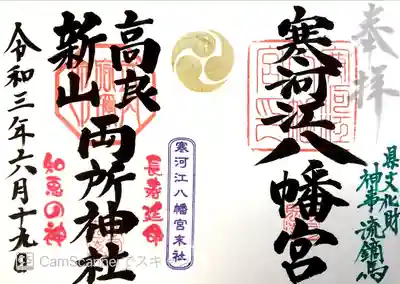 奉拝
寒河江八幡宮
県文化財
神事 流鏑馬
寒河江八幡宮末社
長寿延命
高良
新山
両所神社
知恵の神
令和三年六月十九日
CamScannerでスキ